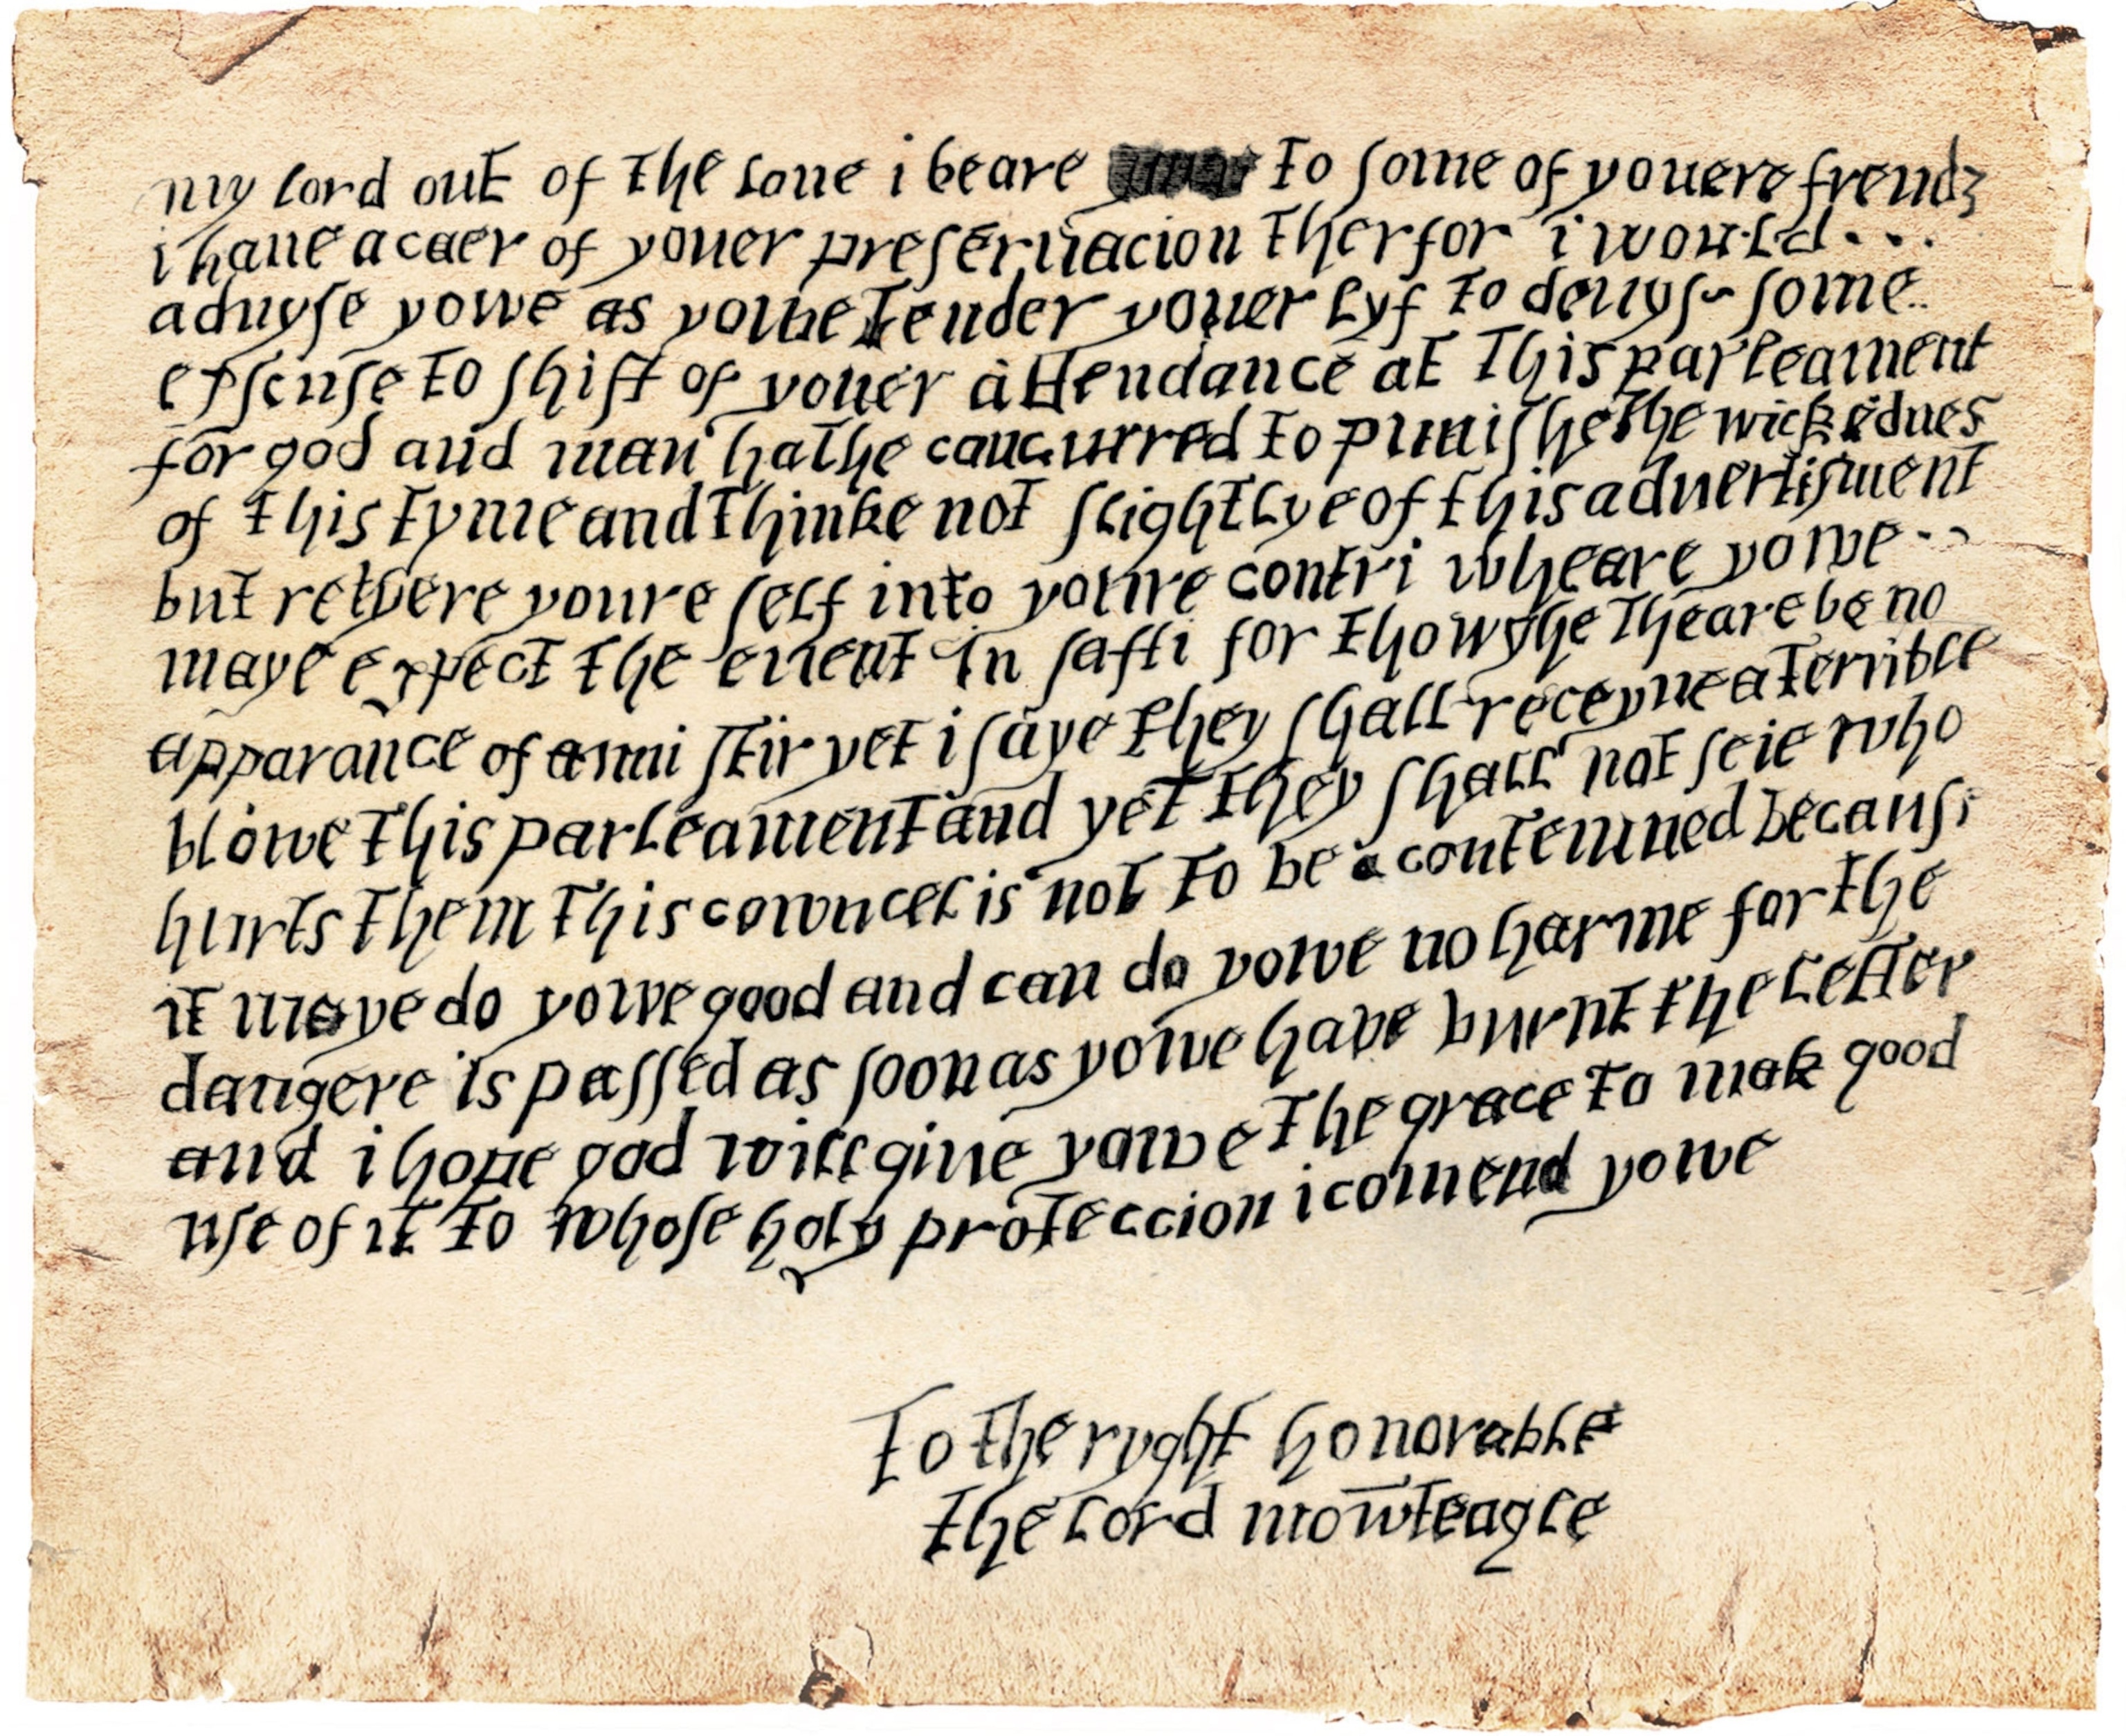 my lord out of the loue i beare to some of youere frendz
i haue a caer of youer preseruacion therfor i would...
aduyse yowe as yowe tender youer lyf to deuys some..
exscuse to shift of youer attendance at this parleament
for god and man hathe concurred to punishe the wickednes
of this tyme and thinke not slightlye of this aduertisment
but retyere youre self into youre contri wheare yowe --
maye expect the euent in safti for thowghe theare be no
apparance of anni stir yet i saye they shall receyue a terrible
blowe this parleament and yet they shall not seie who
hurts them this cowncel is not to be a contemned becausi
it maye do yowe good and can do yowe no harme for the
dangere is passed as soon as yowe have burnt the letter
and i hope god will giue yowe the grace to mak good
use of it to whose holy proteccion i comend yowe
To the ryght honorable
the lord mowteagle